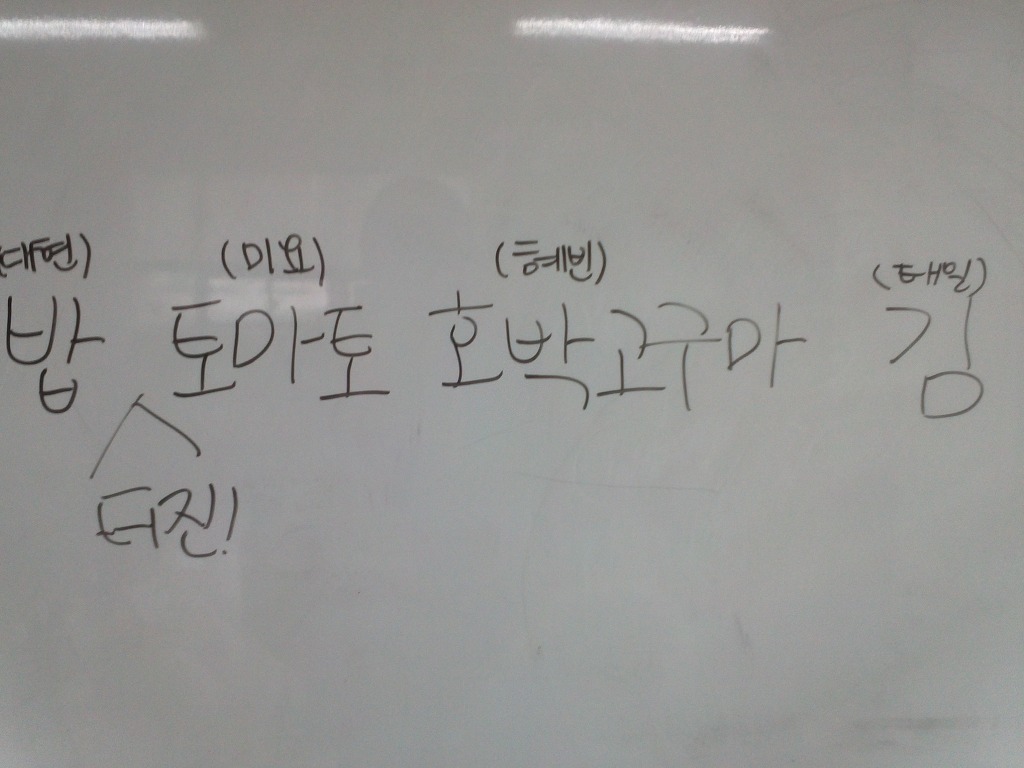 (대현) (미요) (혜빈) (태일)
밥 토마토 호박고구마 김
터진!